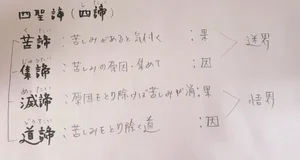 四聖諦(四諦)
くたい
苦諦:苦しみがあると気付く:果
じったい
集諦:苦しみの原因・集めて:因
迷界
めったい
滅諦:原因をとり除けば苦しみが消:果
どうたい
道諦:苦しみをとり除く道:因
悟界